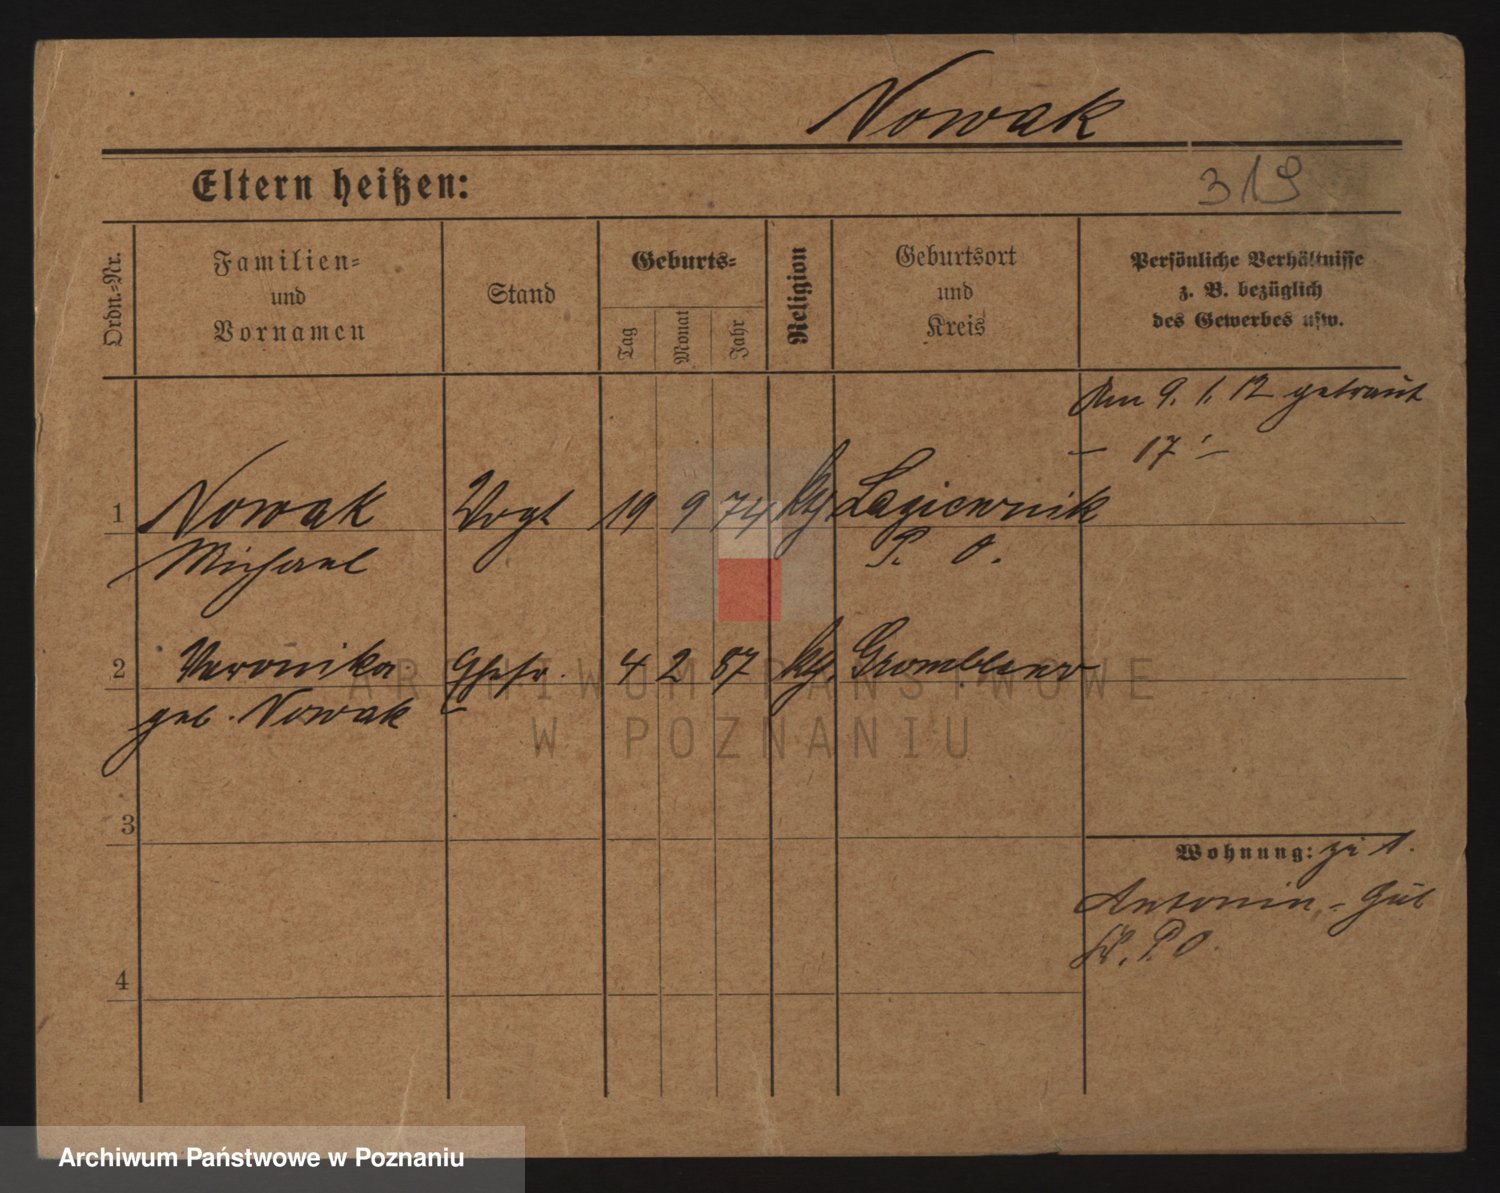 Nowak
Eltern heißen:
319
Ordn.=Nr.
Familien=
und
Vornamen
Stand
Geburts=
Tag
Monat
Jahr
Religion
Geburtsort
und
Kreis
Persönliche Verhältnisse
z. B. bezüglich
des Gewerbes usw.
Am 9. 1. 12 getraut
— 17 —
1 Nowak Vogt 19 9 74 kth. Lagiewnik
Michael P. O.
2 Veronika Ehefr. 4 2 87 kth.
geb. Nowak
3
Wohnung: zu 1.
Antonin - Gut
Kr. P. O.
4
ARCHIWUM PAŃSTWOWE
W POZNANIU
Archiwum Państwowe w Poznaniu